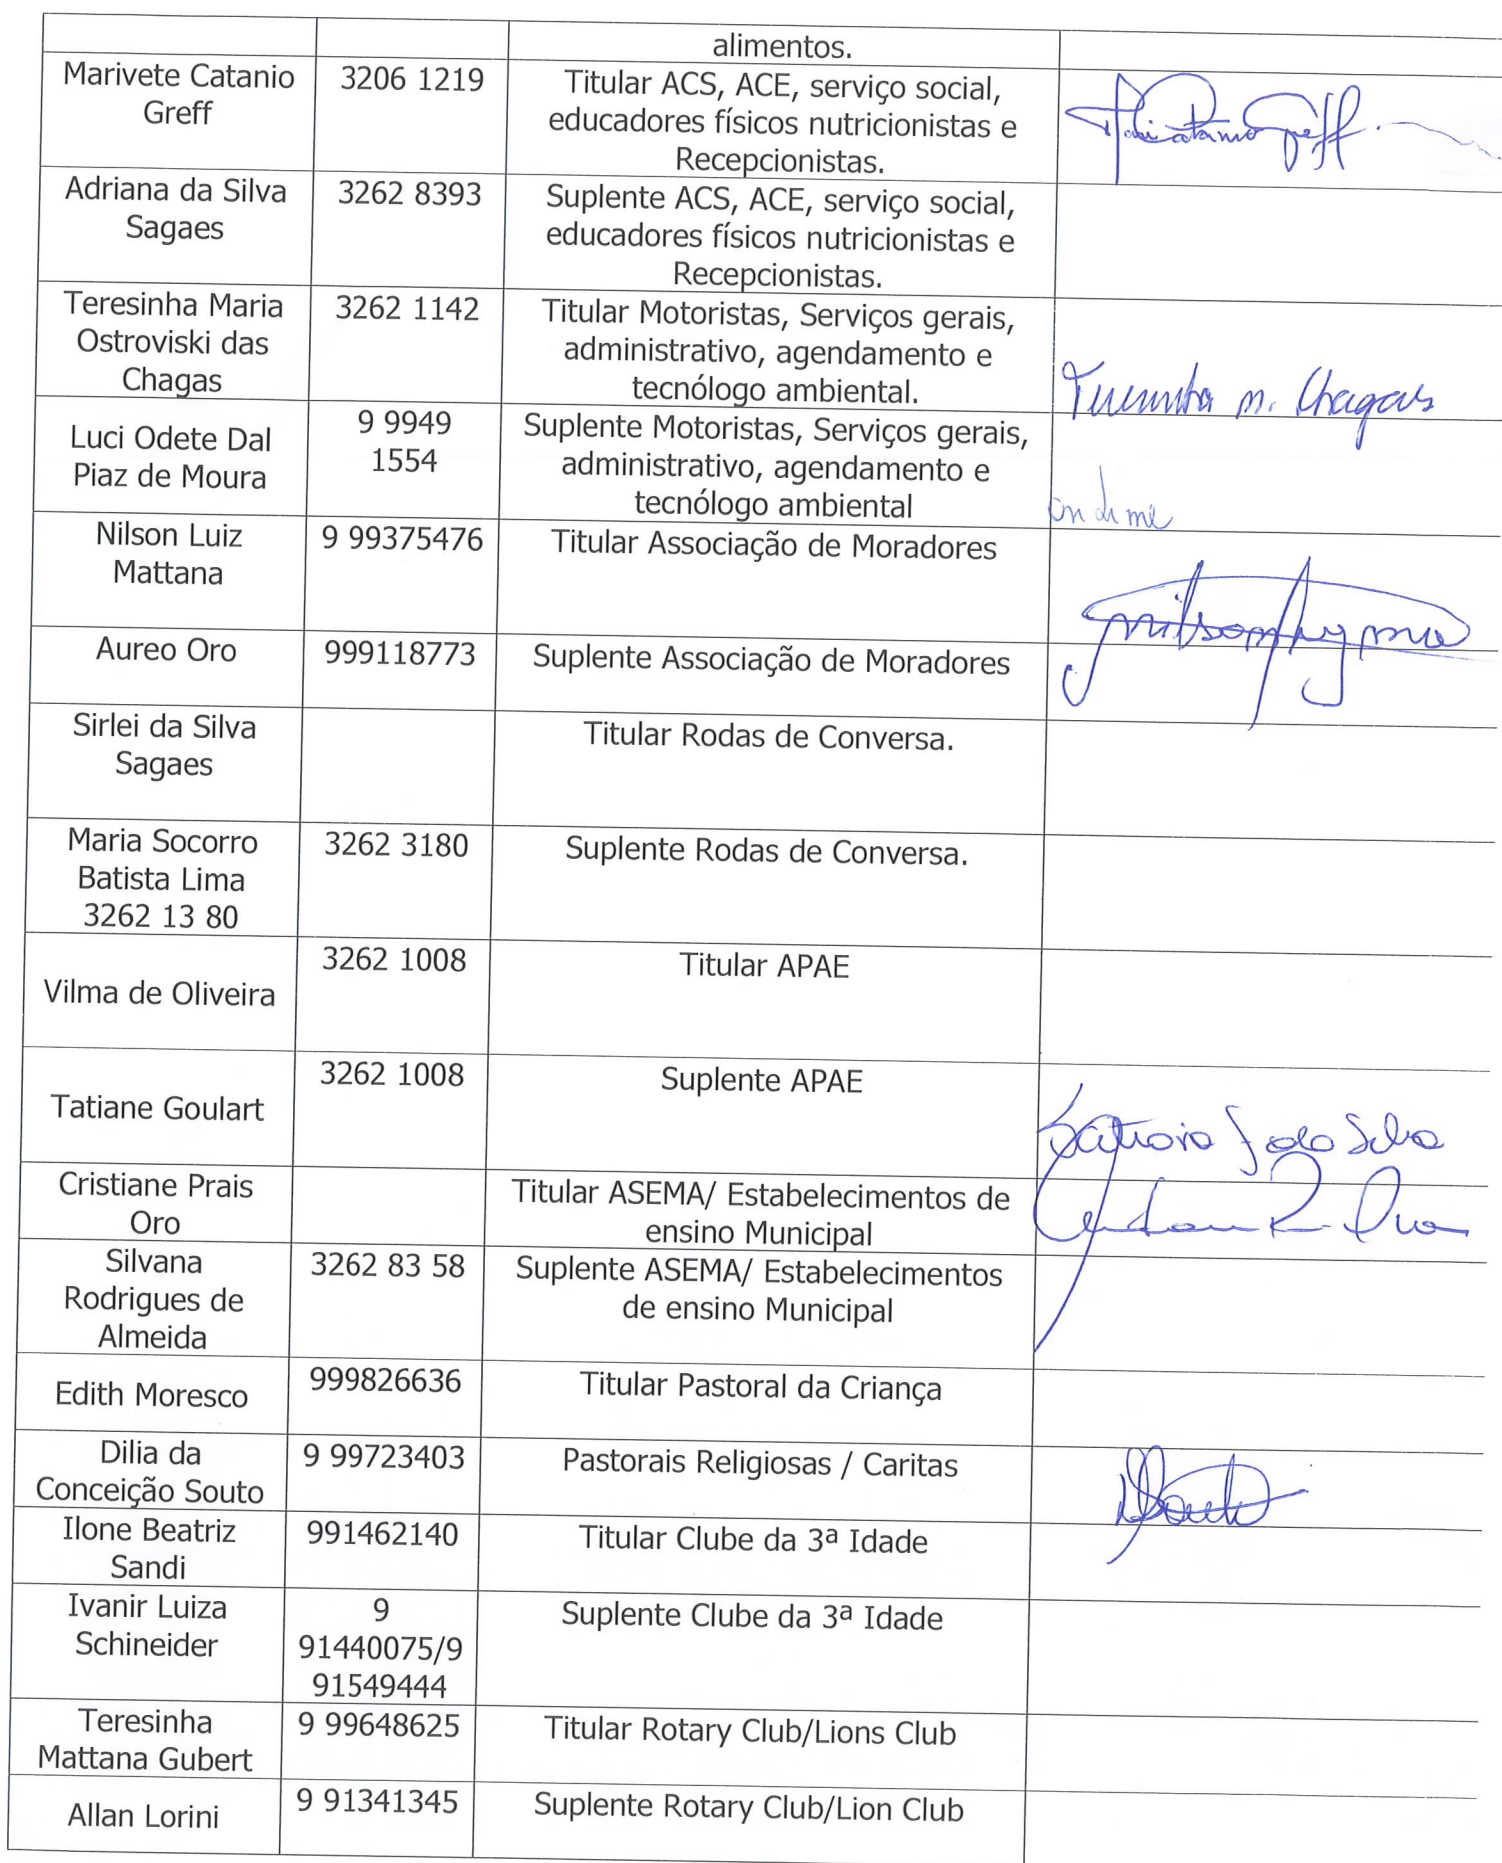 alimentos.
Marivete Catanio
Greff
3206 1219
Titular ACS, ACE, serviço social,
educadores físicos nutricionistas e
Recepcionistas.
Adriana da Silva
Sagaes
3262 8393
Suplente ACS, ACE, serviço social,
educadores físicos nutricionistas e
Recepcionistas.
Teresinha Maria
Ostroviski das
Chagas
3262 1142
Titular Motoristas, Serviços gerais,
administrativo, agendamento e
tecnólogo ambiental.
m. Chagas
Luci Odete Dal
Piaz de Moura
9 9949
1554
Suplente Motoristas, Serviços gerais,
administrativo, agendamento e
tecnólogo ambiental
Nilson Luiz
Mattana
9 99375476
Titular Associação de Moradores
Aureo Oro
999118773
Suplente Associação de Moradores
Sirlei da Silva
Sagaes
Titular Rodas de Conversa.
Maria Socorro
Batista Lima
3262 13 80
3262 3180
Suplente Rodas de Conversa.
Vilma de Oliveira
3262 1008
Titular APAE
Tatiane Goulart
3262 1008
Suplente APAE
Cristiane Prais
Oro
Titular ASEMA/ Estabelecimentos de
ensino Municipal
Silvana
Rodrigues de
Almeida
3262 83 58
Suplente ASEMA/ Estabelecimentos
de ensino Municipal
Edith Moresco
999826636
Titular Pastoral da Criança
Dilia da
Conceição Souto
9 99723403
Pastorais Religiosas / Caritas
Ilone Beatriz
Sandi
991462140
Titular Clube da 3ª Idade
Ivanir Luiza
Schineider
9
91440075/9
91549444
Suplente Clube da 3ª Idade
Teresinha
Mattana Gubert
9 99648625
Titular Rotary Club/Lions Club
Allan Lorini
9 91341345
Suplente Rotary Club/Lion Club